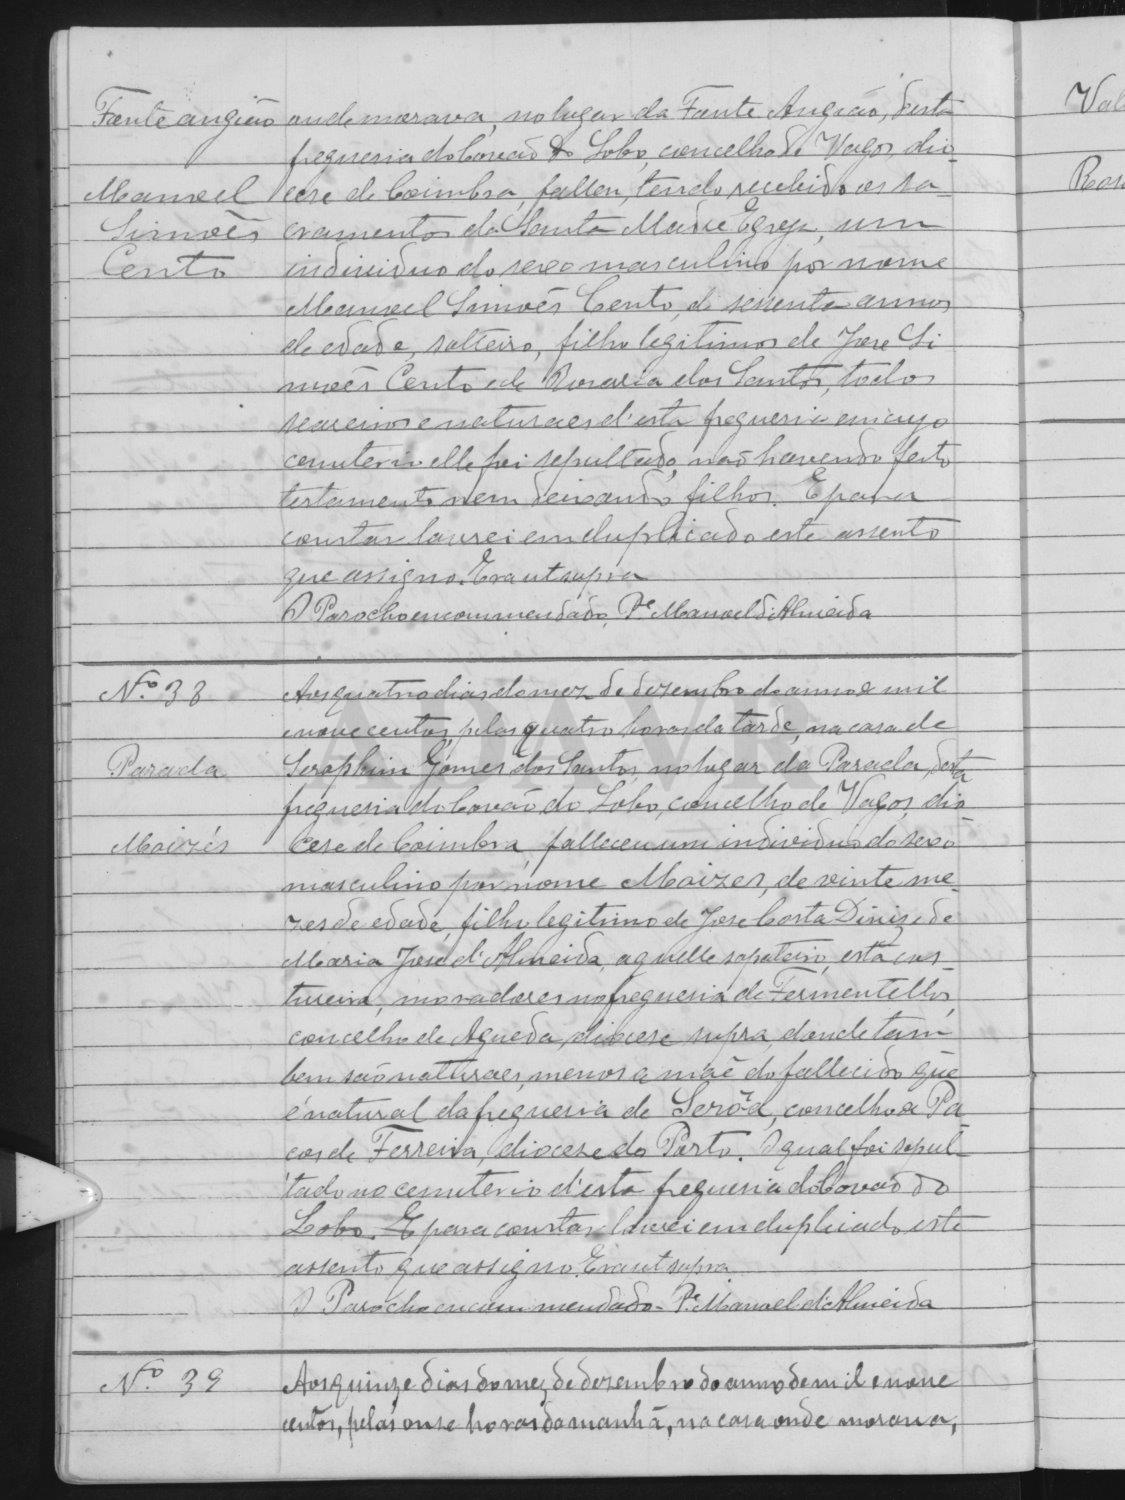 Fonte angião
Manoel
Simões
Cento
onde morava, no lugar da Fonte Angião, desta
freguesia do Covão do Lobo, concelho de Vagos, dio-
cese de Coimbra, falleu, tendo recebido os sa-
cramentos da Santa Madre Egreja, um
individuo do sexo masculino por nome
Manoel Simões Cento, de sesenta annos
de edade, solteiro, filho legitimo de Jose Si
mões Cento e de Rosaria dos Santos, todos
e naturaes d'esta freguesia em cujo
cemiterio elle foi sepultado, não havendo feito
testamento nem deixando filhos. E para
constar lavrei em duplicado este assento
que assigno. Era ut supra
O Parocho encommendado, Pe. Manoel d'Almeida
N.º 38
Parada
Moizés
Aos quatro dias do mez de dezembro do anno de mil
e nove centos, pelas quatro horas da tarde, na casa de
Seraphim Gomes dos Santos, no lugar da Parada, desta
freguesia do Covão do Lobo, concelho de Vagos, dio-
cese de Coimbra, falleceu um individuo do sexo
masculino por nome Moizes, de vinte me-
zes de edade, filho legitimo de Jose Costa Diniz e de
Maria Jose d'Almeida, aquelle sapateiro, esta cos-
tureira, moradores na freguesia de Fermentellos,
concelho de Agueda, diocese supra, donde tam
bem são naturaes, menos a mãe do fallecido que
é natural da freguesia de Serôa, concelho de Pa
ços de Ferreira, diocese do Porto. O qual foi sepul-
tado no cemiterio d'esta freguesia do Covão do
Lobo. E para constar lavrei em duplicado este
assento que assigno. Era ut supra
O Parocho encommendado - Pe. Manoel d'Almeida
N.º 39
Aos quinze dias do mez de dezembro do anno de mil e nove
centos, pelas onse horas da manhã, na casa onde morava,